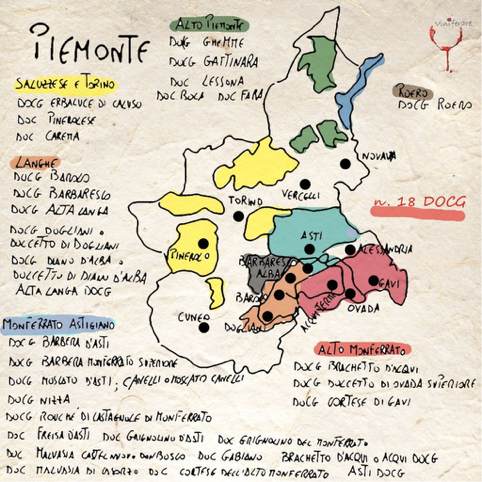 PIEMONTE
Viniferare
ALTO PIEMONTE
DOCG GHEMME
DOCG GATTINARA
DOC LESSONA
DOC BOCA DOC FARA
SALUZZESE E TORINO
DOCG ERBALUCE DI CALUSO
DOC PINEROLESE
DOC CAREMA
ROERO
DOCG ROERO
LANGHE
DOCG BAROLO
DOCG BARBARESCO
DOCG ALTA LANGA
DOCG DOGLIANI O
DOLCETTO DI DOGLIANI
DOCG DIANO D'ALBA O
DOLCETTO DI DIANO D'ALBA
ALTA LANGA DOCG
NOVARA
VERCELLI
TORINO
n. 18 DOCG
ASTI
ALESSANDRIA
PINEROLO
BARBARESCO
ALBA
BAROLO
GAVI
ACQUI TERME
OVADA
CUNEO
DOGLIANI
MONFERRATO ASTIGIANO
DOCG BARBERA D'ASTI
DOCG BARBERA MONFERRATO SUPERIORE
DOCG MOSCATO D'ASTI; CANELLI O MOSCATO CANELLI
DOCG NIZZA
DOCG RUCHÈ DI CASTAGNOLE DI MONFERRATO
DOC FREISA D'ASTI DOC GRIGNOLINO D'ASTI DOC GRIGNOLINO DEL MONFERRATO
DOC MALVASIA CASTELNUOVO DON BOSCO DOC GABIANO BRACHETTO D'ACQUI O ACQUI DOCG
DOC MALVASIA DI CASORZO DOC CORTESE DELL'ALTO MONFERRATO ASTI DOCG
ALTO MONFERRATO
DOCG BRACHETTO D'ACQUI
DOCG DOLCETTO DI OVADA SUPERIORE
DOCG CORTESE DI GAVI